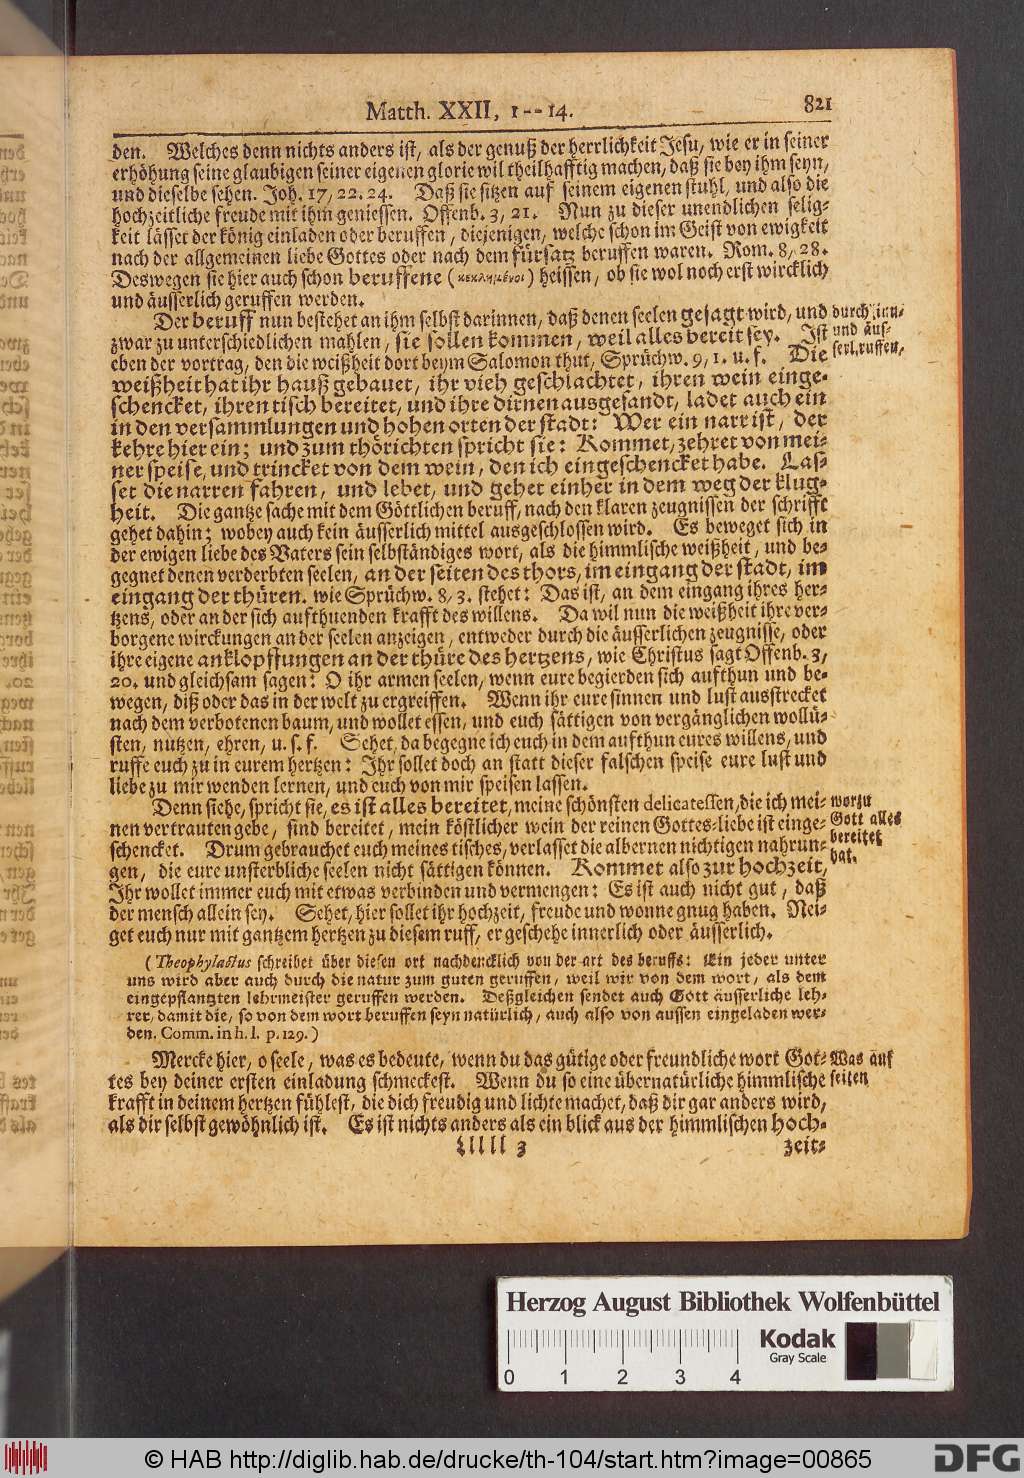 Matth. XXII, 1--14. 821
den. Welches denn nichts anders ist, als der genuß der herrlichkeit Jesu, wie er in seiner
erhöhung seine glaubigen seiner eigenen glorie wil theilhafftig machen, daß sie bey ihm seyn,
und dieselbe sehen. Joh. 17, 22. 24. Daß sie sitzen auf seinem eigenen stuhl, und also die
hochzeitliche freude mit ihm geniessen. Offenb. 3, 21. Nun zu dieser unendlichen selig-
keit lässet der könig einladen oder beruffen, diejenigen, welche schon im Geist von ewigkeit
nach der allgemeinen liebe Gottes oder nach dem fürsatz beruffen waren. Rom. 8, 28.
Deswegen sie hier auch schon beruffene (κεκλημένοι) heissen, ob sie wol noch erst wircklich
und äusserlich geruffen werden.
Der beruff nun bestehet an ihm selbst darinnen, daß denen seelen gesagt wird, und
zwar zu unterschiedlichen mahlen, sie sollen kommen, weil alles bereit sey. Ist
eben der vortrag, den die weißheit dort beym Salomon thut, Sprüchw. 9, 1. u. f. Die
durch inn-
und äus-
serl. ruffen,
weißheit hat ihr hauß gebauet, ihr vieh geschlachtet, ihren wein einge-
schencket, ihren tisch bereitet, und ihre dirnen ausgesandt, ladet auch ein
in den versammlungen und hohen orten der stadt: Wer ein narr ist, der
kehre hier ein; und zum thörichten spricht sie: Kommet, zehret von mei-
ner speise, und trincket von dem wein, den ich eingeschencket habe. Las-
set die narren fahren, und lebet, und gehet einher in dem weg der klug-
heit. Die gantze sache mit dem Göttlichen beruff, nach den klaren zeugnissen der schrifft
gehet dahin; wobey auch kein äusserlich mittel ausgeschlossen wird. Es beweget sich in
der ewigen liebe des Vaters sein selbständiges wort, als die himmlische weißheit, und be-
gegnet denen verderbten seelen, an der seiten des thors, im eingang der stadt, im
eingang der thüren. wie Sprüchw. 8, 3. stehet: Das ist, an dem eingang ihres her-
tzens, oder an der sich aufthuenden krafft des willens. Da wil nun die weißheit ihre ver-
borgene wirckungen an der seelen anzeigen, entweder durch die äusserlichen zeugnisse, oder
ihre eigene anklopffungen an der thüre des hertzens, wie Christus sagt Offenb. 3,
20. und gleichsam sagen: O ihr armen seelen, wenn eure begierden sich aufthun und be-
wegen, diß oder das in der welt zu ergreiffen. Wenn ihr eure sinnen und lust ausstrecket
nach dem verbotenen baum, und wollet essen, und euch sättigen von vergänglichen wollü-
sten, nutzen, ehren, u. s. f. Sehet, da begegne ich euch in dem aufthun eures willens, und
ruffe euch zu in eurem hertzen: Ihr sollet doch an statt dieser falschen speise eure lust und
liebe zu mir wenden lernen, und euch von mir speisen lassen.
Denn siehe, spricht sie, es ist alles bereitet, meine schönsten delicatessen, die ich mei-
nen vertrauten gebe, sind bereitet, mein köstlicher wein der reinen Gottes-liebe ist einge-
schencket. Drum gebrauchet euch meines tisches, verlasset die albernen nichtigen nahrun-
gen, die eure unsterbliche seelen nicht sättigen können. Kommet also zur hochzeit,
worzu
Gott alles
bereitet
hat.
Ihr wollet immer euch mit etwas verbinden und vermengen: Es ist auch nicht gut, daß
der mensch allein sey. Sehet, hier sollet ihr hochzeit, freude und wonne gnug haben. Nei-
get euch nur mit gantzem hertzen zu diesem ruff, er geschehe innerlich oder äusserlich.
(Theophylactus schreibet über diesen ort nachdencklich von der art des beruffs: Ein jeder unter
uns wird aber auch durch die natur zum guten geruffen, weil wir von dem wort, als dem
eingepflantzten lehrmeister geruffen werden. Deßgleichen sendet auch Gott äusserliche leh-
rer, damit die, so von dem wort beruffen seyn natürlich, auch also von aussen eingeladen wer-
den. Comm. in h. l. p. 129.)
Mercke hier, o seele, was es bedeute, wenn du das gütige oder freundliche wort Got-
tes bey deiner ersten einladung schmeckest. Wenn du so eine übernatürliche himmlische
Was auf
seiten
krafft in deinem hertzen fühlest, die dich freudig und lichte machet, daß dir gar anders wird,
als dir selbst gewöhnlich ist. Es ist nichts anders als ein blick aus der himmlischen hoch-
Lllll 3 zeit-
Herzog August Bibliothek Wolfenbüttel
Kodak
Gray Scale
0 1 2 3 4
© HAB http://diglib.hab.de/drucke/th-104/start.htm?image=00865
DFG